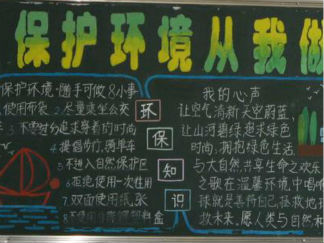 保护环境从我做
保护环境·随手可做8小事
1.使用布袋 2.尽量乘坐公交
3.不要过分追求穿着的时尚
4.提倡步行,骑单车
5.不进入自然保护区
6.拒绝使用一次性
7.双面使用纸张
8.不使用
料盒
环
保
知
识
我的心声
让空气清新天空蔚蓝,
让山河碧绿追求绿色
时尚,拥抱绿色生活,
与大自然共享生命之欢乐
之歌在温馨环境中唱响
球就是善待自己,拯救地球
救未来,愿人类与自然和